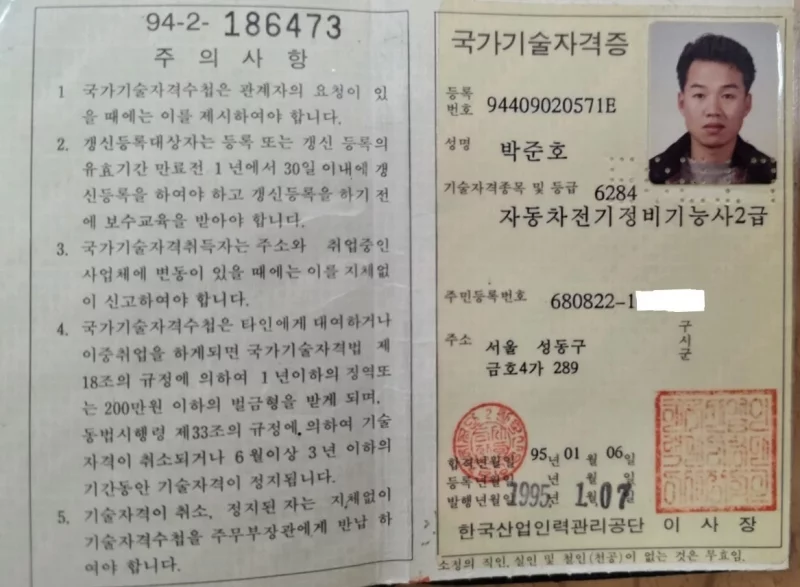 94-2- 186473
주 의 사 항
1 국가기술자격수첩은 관계자의 요청이 있
을 때에는 이를 제시하여야 합니다.
2. 갱신등록대상자는 등록 또는 갱신 등록의
유효기간 만료전 1년에서 30일 이내에 갱
신등록을 하여야 하고 갱신등록을 하기 전
에 보수교육을 받아야 합니다.
3. 국가기술자격취득자는 주소와 취업중인
사업체에 변동이 있을 때에는 이를 지체없
이 신고하여야 합니다.
4. 국가기술자격수첩은 타인에게 대여하거나
이중취업을 하게되면 국가기술자격법 제
18조의 규정에 의하여 1년이하의 징역또
는 200만원 이하의 벌금형을 받게 되며,
동법시행령 제33조의 규정에 의하여 기술
자격이 취소되거나 6월이상 3년 이하의
기간동안 기술자격이 정지됩니다.
5. 기술자격이 취소, 정지된 자는 지체없이
기술자격수첩을 주무부장관에게 반납 하
여야 합니다.
국가기술자격증
등록
번호 94409020571E
성명 박준호
기술자격종목 및 등급 6284
자동차전기정비기능사2급
주민등록번호 680822-1
주소 서울 성동구 구시군
금호4가 289
합격년월일 95년 01월 06일
등록년월일 년 월 일
발행년월일 1995년 1월 07
한국산업인력관리공단 이 사 장
소정의 직인, 실인 및 철인(천공)이 없는 것은 무효임.